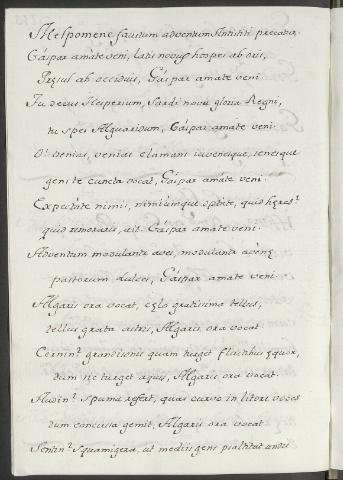 Melpomene faustum adventum Antistiti precatur.
Gáspar amáte veni, latis novus hospes ab oris,
Præsul ab occiduis, Gáspar amate veni.
Tu decus Hesperium, Sardi nova gloria Regni,
tu spes Algaridum, Gáspar amáte veni.
O! venias, venias clamant iuvenesque, senesque
gens te cuncta vocat, Gáspar amáte veni.
Expectáte nimis, nimiumque optáte, quid hęres?
quid remoraris, ait Gáspar amáte veni.
Adventum modulantur aves, modulantur avęnę
pastorum dulces, Gáspar amate veni.
Algaris ora vocat, cęlo gratissima tellus,
tellus grata astris, Algaris ora vocat.
Cernin? grandisonis quam turget fluctibus ęquor,
dum sic turget aquis, Algaris ora vocat.
Audin? spuma refert, quas curvo in litore voces
dum concussa gemit, Algaris ora vocat.
Sentin? squamigera, ut mediis gens psaltitat undis